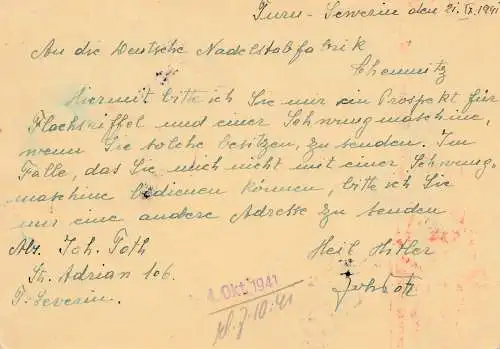 Turn-Severin den 21. IX. 1941
An die Deutsche Nadelstabfabrik
Chemnitz
Hiermit bitte ich Sie mir ein Prospekt für
Flachsriffel und einer Schwungmaschine,
wenn Sie solche besitzen, zu senden. Im
Falle, das Sie mich nicht mit einer Schwung-
maschine bedienen können, bitte ich Sie
mir eine andere Adresse zu senden
Abs. Joh. Toth
Str. Adrian 106.
T. Severin.
Heil Hitler
Joh Toth
4. Okt 1941
7.10.41